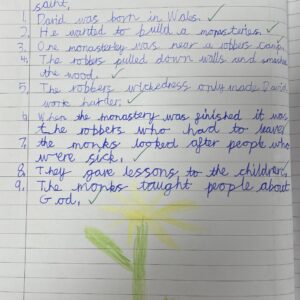 saint.
1. David was born in Wales.
2. He wanted to build a monasteries.
3. One monastery was near a robbers camp.
4. The robbers pulled down walls and
the wood.
5. The robbers wickedness only made David
work harder.
6. When the monastery was finished it was
the robbers who had to leave
7. the monks looked after people who
were sick.
8. They gave lessons to the children.
9. The monks taught people about
God.